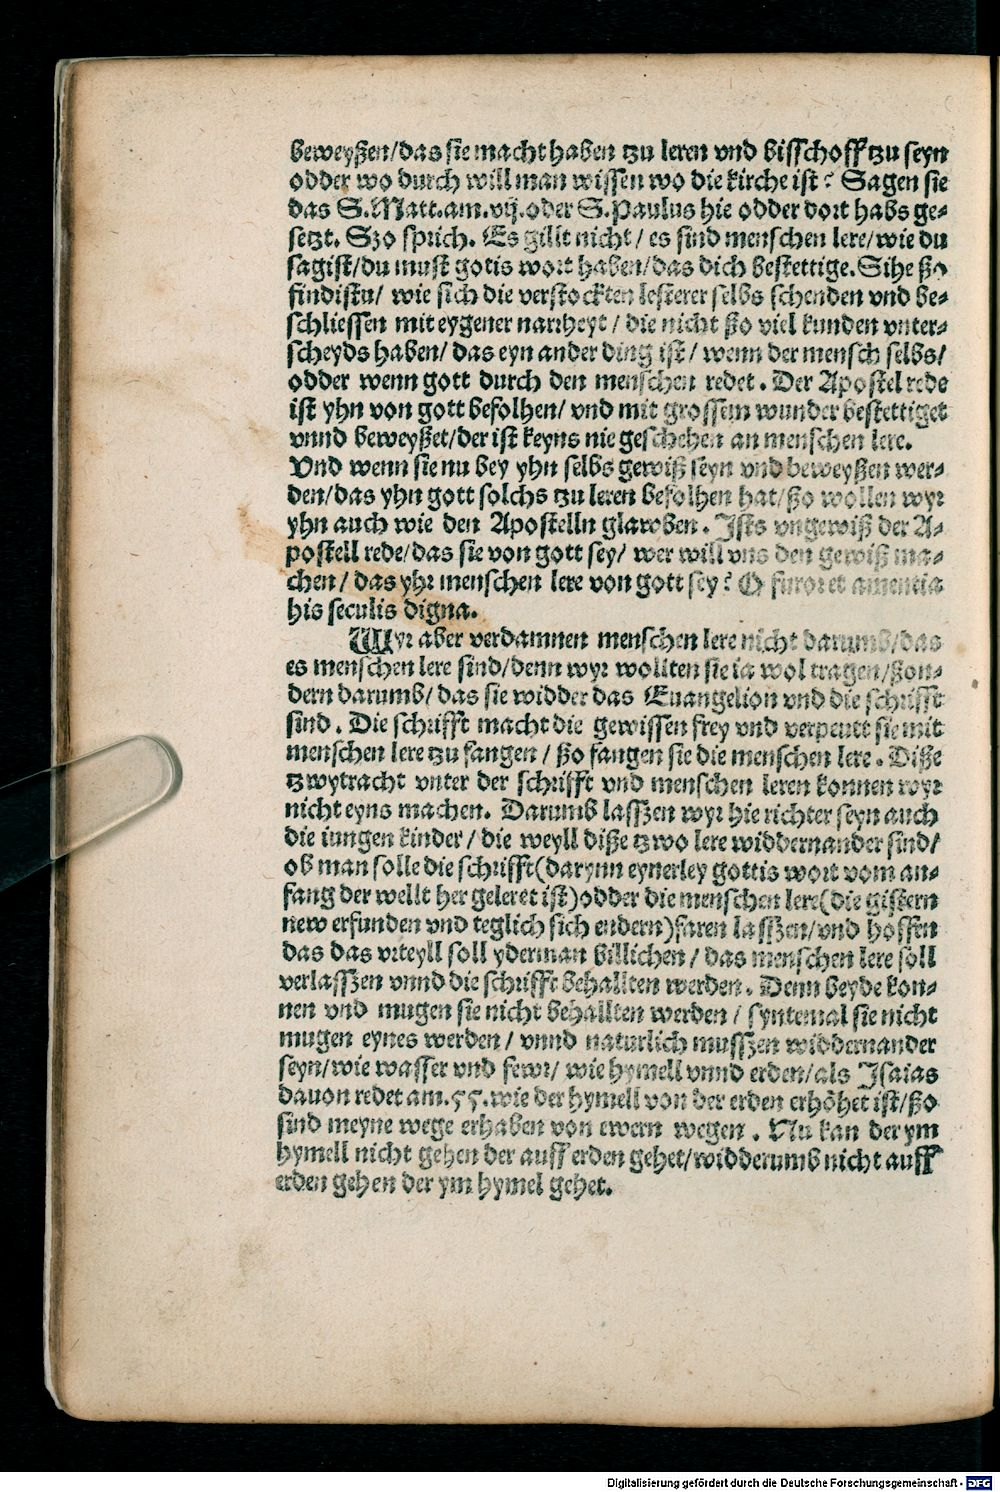 beweyßen/das sie macht haben tzu leren vnd bisschoff tzu seyn
odder wo durch will man wissen wo die kirche ist? Sagen sie
das S. Matt. am. vij. oder S. Paulus hie odder dort habs ge-
setzt. Szo sprich. Es gillt nicht/ es sind menschen lere/ wie du
sagist/du must gotis wort haben/das dich bestettige. Sihe ßo
findistu/ wie sich die verstockten lesterer selbs schenden vnd be-
schliessen mit eygener narrheyt/ die nicht ßo viel kunden vnter-
scheyds haben/ das eyn ander ding ist/ wenn der mensch selbs/
odder wenn gott durch den menschen redet. Der Apostel rede
ist yhn von gott befolhen/ vnd mit grossem wunder bestettiget
vnnd beweyßet/der ist keyns nie geschehen an menschen lere.
Vnd wenn sie nu bey yhn selbs gewiß seyn vnd beweyßen wer-
den/das yhn gott solchs tzu leren befolhen hat/ßo wollen wyr
yhn auch wie den Apostelln glawben. Ists vngewiß der A-
postell rede/das sie von gott sey/ wer will vns den gewiß ma-
chen/ das yhr menschen lere von gott sey? O furor et amentia
his seculis digna.
Wyr aber verdamnen menschen lere nicht darumb/das
es menschen lere sind/denn wyr wollten sie ia wol tragen/ßon-
dern darumb/ das sie widder das Euangelion vnd die schrifft
sind. Die schrifft macht die gewissen frey vnd verpeutt sie mit
menschen lere tzu fangen/ ßo fangen sie die menschen lere. Diße
tzwytracht vnter der schrifft vnd menschen leren konnen wyr
nicht eyns machen. Darumb lasszen wyr hie richter seyn auch
die iungen kinder/ die weyll diße tzwo lere widdernander sind/
ob man solle die schrifft(darynn eynerley gottis wort vom an-
fang der wellt her geleret ist)odder die menschen lere(die gistern
new erfunden vnd teglich sich endern)faren lasszen/vnd hoffen
das das vrteyll soll yderman billichen/ das menschen lere soll
verlasszen vnnd die schrifft behallten werden. Denn beyde kon-
nen vnd mugen sie nicht behallten werden/ syntemal sie nicht
mugen eynes werden/ vnnd naturlich musszen widdernander
seyn/wie wasser vnd fewr/ wie hymell vnnd erden/als Isaias
dauon redet am. 55. wie der hymell von der erden erhöhet ist/ßo
sind meyne wege erhaben von ewern wegen. Nu kan der ym
hymell nicht gehen der auff erden gehet/widderumb nicht auff
erden gehen der ym hymel gehet.
Digitalisierung gefördert durch die Deutsche Forschungsgemeinschaft - DFG